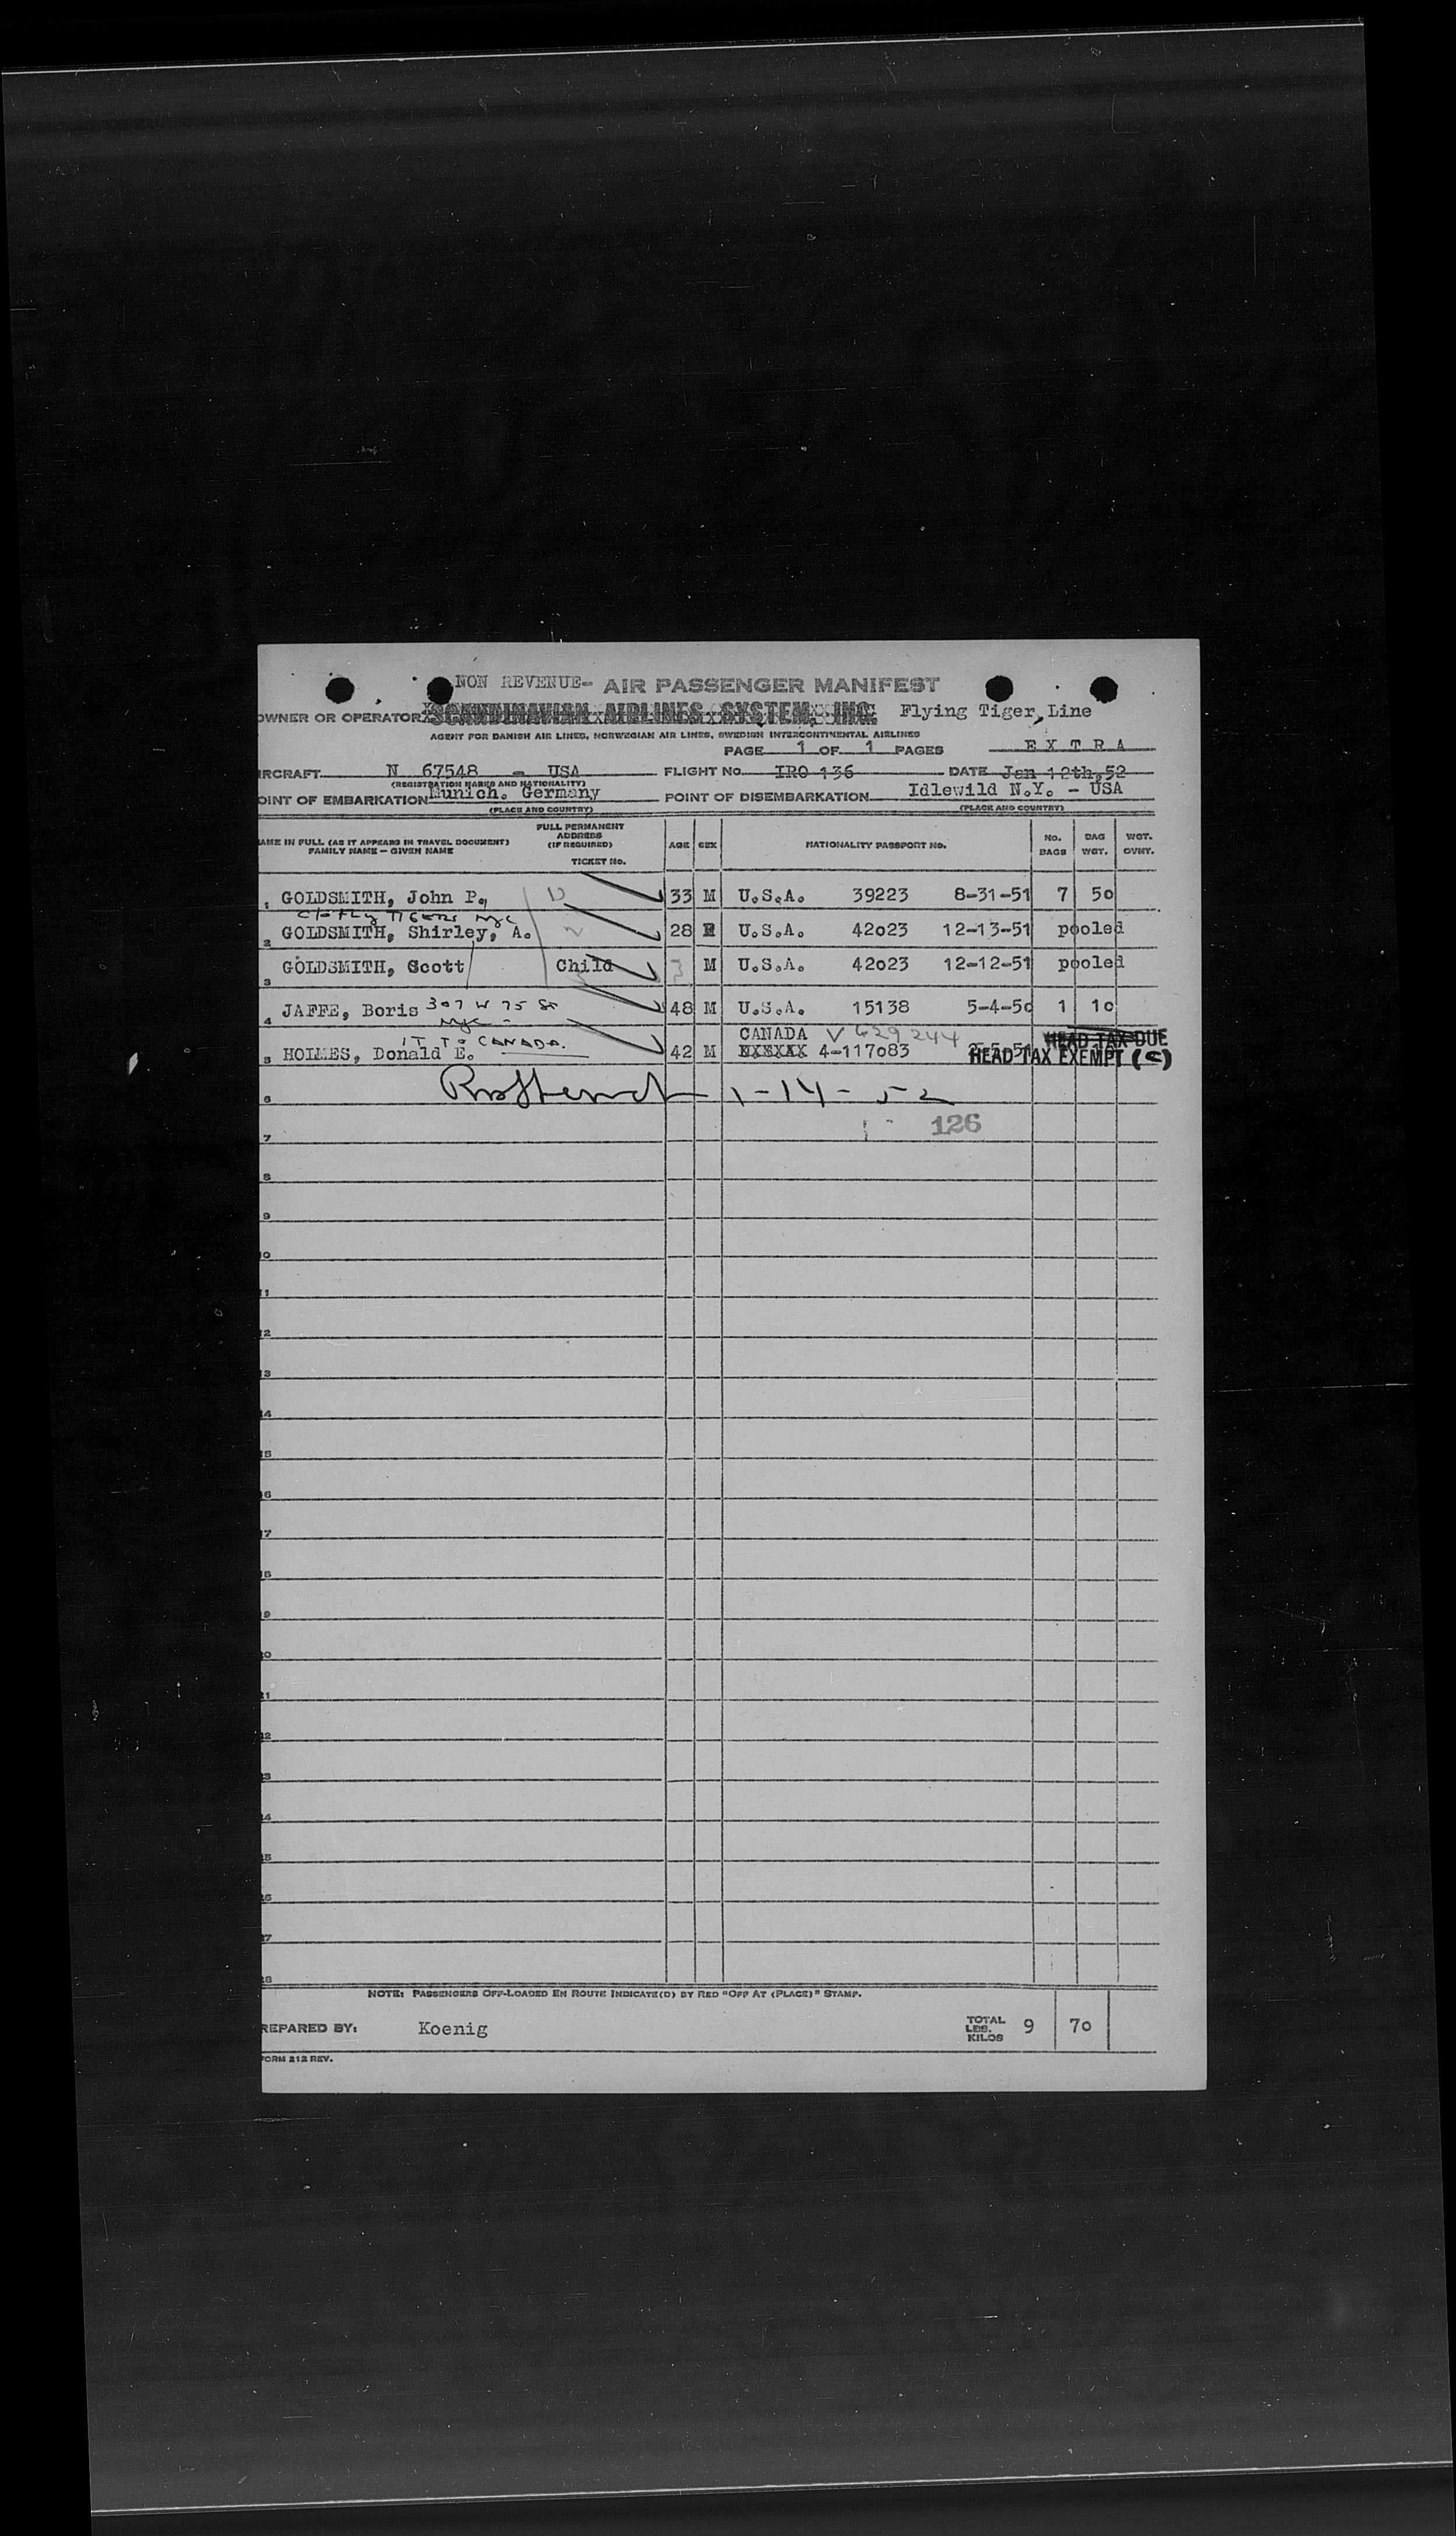 NON REVENUE- AIR PASSENGER MANIFEST
OWNER OR OPERATOR SCANDINAVIAN AIRLINES SYSTEM, INC. Flying Tiger Line
AGENT FOR DANISH AIR LINES, NORWEGIAN AIR LINES, SWEDISH INTERCONTINENTAL AIRLINES
PAGE 1 OF 1 PAGES E X T R A
IRCRAFT N 67548 - USA FLIGHT NO. IRO 136 DATE Jan 12th,52
(REGISTRATION MARKS AND NATIONALITY)
OINT OF EMBARKATION Munich. Germany POINT OF DISEMBARKATION Idlewild N.Y. - USA
(PLACE AND COUNTRY) (PLACE AND COUNTRY)
AME IN FULL (AS IT APPEARS IN TRAVEL DOCUMENT) FAMILY NAME — GIVEN NAME FULL PERMANENT ADDRESS (IF REQUIRED) TICKET NO. AGE SEX NATIONALITY PASSPORT NO. NO. BAGS BAG WGT. WGT. OVWT.
1 GOLDSMITH, John P., 33 M U.S.A. 39223 8-31-51 7 50
C/o FLY TIGERS NYC
2 GOLDSMITH, Shirley, A. 2 28 F U.S.A. 42023 12-13-51 pooled
3 GOLDSMITH, Scott Child 3 M U.S.A. 42023 12-12-51 pooled
4 JAFFE, Boris 307 W 75 St 48 M U.S.A. 15138 5-4-50 1 10
NYC -
IT TO CANADA. CANADA V 629244 HEAD TAX DUE
5 HOLMES, Donald E. 42 M 4-117083 HEAD TAX EXEMPT (C)
6 1-14-52
7 126
8
9
10
11
12
13
14
15
16
17
18
19
20
21
22
23
24
25
26
27
28
NOTE: PASSENGERS OFF-LOADED EN ROUTE INDICATE(D) BY RED "OFF AT (PLACE)" STAMP.
REPARED BY: Koenig TOTAL LBS. KILOS 9 70
FORM 212 REV.